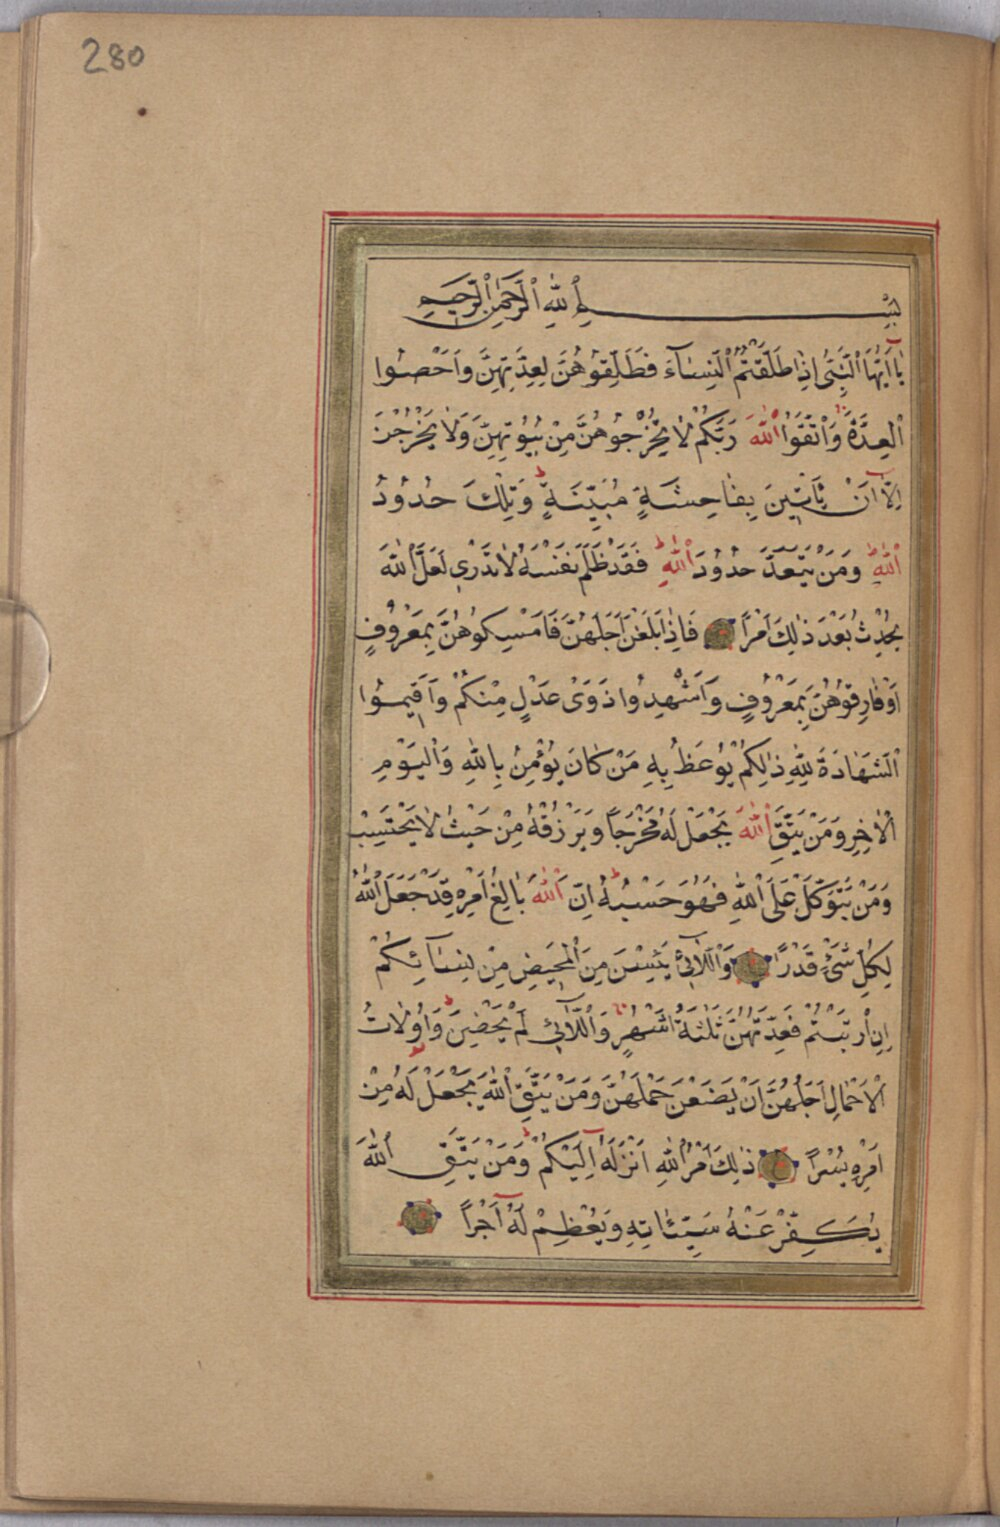 280
بِسْمِ اللّٰهِ الرَّحْمٰنِ الرَّحِيمِ
يَٓا اَيُّهَا النَّبِيُّ اِذَا طَلَّقْتُمُ النِّسَٓاءَ فَطَلِّقُوهُنَّ لِعِدَّتِهِنَّ وَاَحْصُوا
الْعِدَّةَ وَاتَّقُوا اللّٰهَ رَبَّكُمْ لَا تُخْرِجُوهُنَّ مِنْ بُيُوتِهِنَّ وَلَا يَخْرُجْنَ
اِلَّٓا اَنْ يَأْتِينَ بِفَاحِشَةٍ مُبَيِّنَةٍ وَتِلْكَ حُدُودُ
اللّٰهِ وَمَنْ يَتَعَدَّ حُدُودَ اللّٰهِ فَقَدْ ظَلَمَ نَفْسَهُ لَا تَدْرِي لَعَلَّ اللّٰهَ
يُحْدِثُ بَعْدَ ذٰلِكَ اَمْرًا فَاِذَا بَلَغْنَ اَجَلَهُنَّ فَاَمْسِكُوهُنَّ بِمَعْرُوفٍ
اَوْ فَارِقُوهُنَّ بِمَعْرُوفٍ وَاَشْهِدُوا ذَوَىْ عَدْلٍ مِنْكُمْ وَاَقِيمُوا
الشَّهَادَةَ لِلّٰهِ ذٰلِكُمْ يُوعَظُ بِهِ مَنْ كَانَ يُؤْمِنُ بِاللّٰهِ وَالْيَوْمِ
الْاٰخِرِ وَمَنْ يَتَّقِ اللّٰهَ يَجْعَلْ لَهُ مَخْرَجًا وَيَرْزُقْهُ مِنْ حَيْثُ لَا يَحْتَسِبُ
وَمَنْ يَتَوَكَّلْ عَلَى اللّٰهِ فَهُوَ حَسْبُهُ اِنَّ اللّٰهَ بَالِغُ اَمْرِهِ قَدْ جَعَلَ اللّٰهُ
لِكُلِّ شَيْءٍ قَدْرًا وَاللَّٓائِي يَئِسْنَ مِنَ الْمَحِيضِ مِنْ نِسَٓائِكُمْ
اِنِ ارْتَبْتُمْ فَعِدَّتُهُنَّ ثَلٰثَةُ اَشْهُرٍ وَاللَّٓائِي لَمْ يَحِضْنَ وَاُولَاتُ
الْاَحْمَالِ اَجَلُهُنَّ اَنْ يَضَعْنَ حَمْلَهُنَّ وَمَنْ يَتَّقِ اللّٰهَ يَجْعَلْ لَهُ مِنْ
اَمْرِهِ يُسْرًا ذٰلِكَ اَمْرُ اللّٰهِ اَنْزَلَهُ اِلَيْكُمْ وَمَنْ يَتَّقِ اللّٰهَ
يُكَفِّرْ عَنْهُ سَيِّئَاتِهِ وَيُعْظِمْ لَهُ اَجْرًا